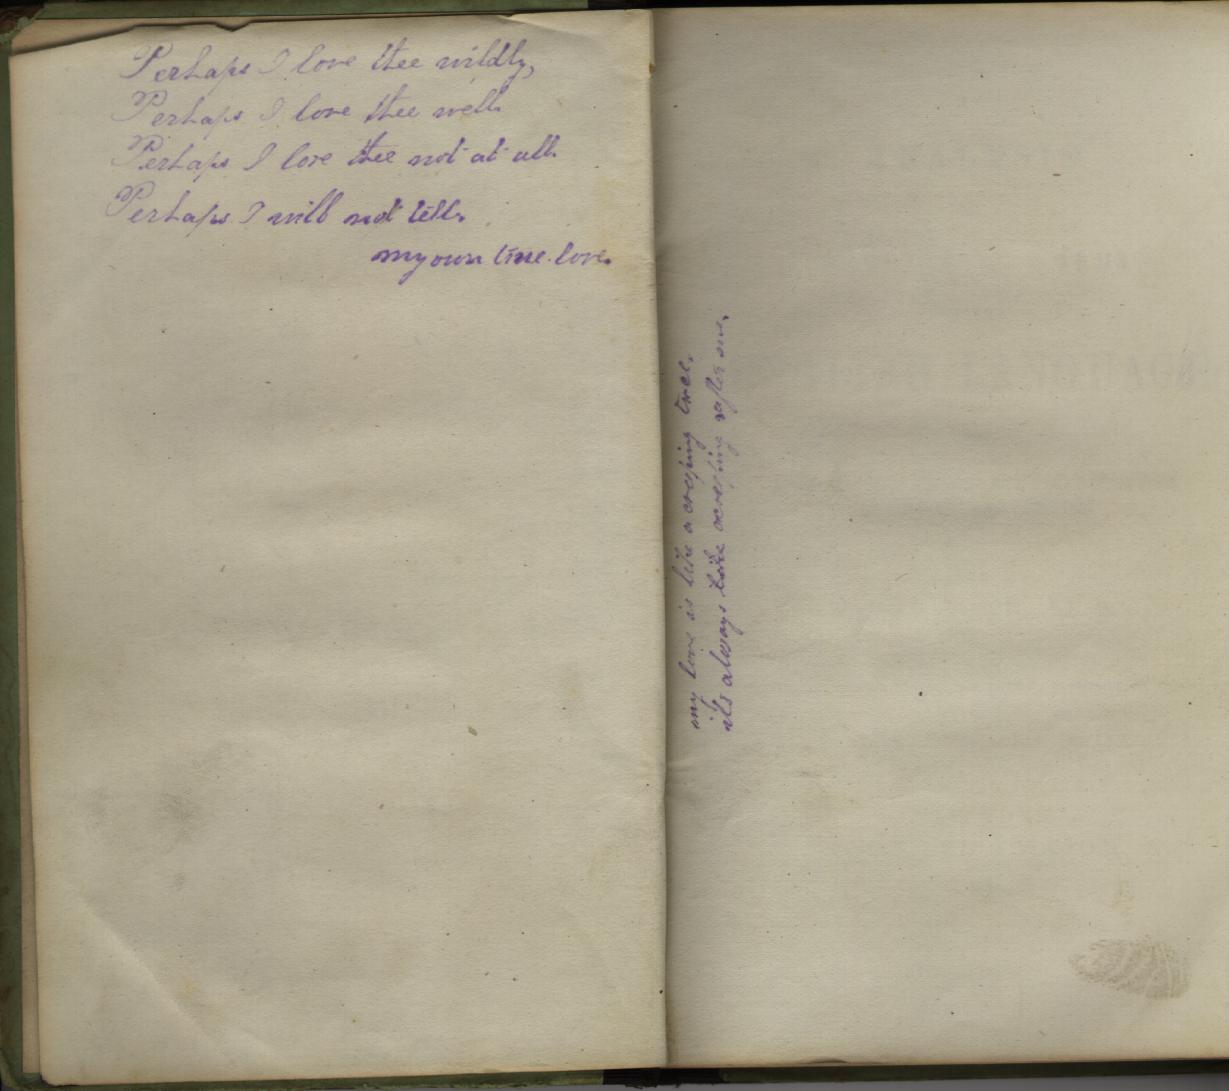 Perhaps I love thee wildly,
Perhaps I love thee well.
Perhaps I love thee not at all.
Perhaps I will not tell.
my own true love.
my love is like a creeping tree.
its always like acreeping after me.